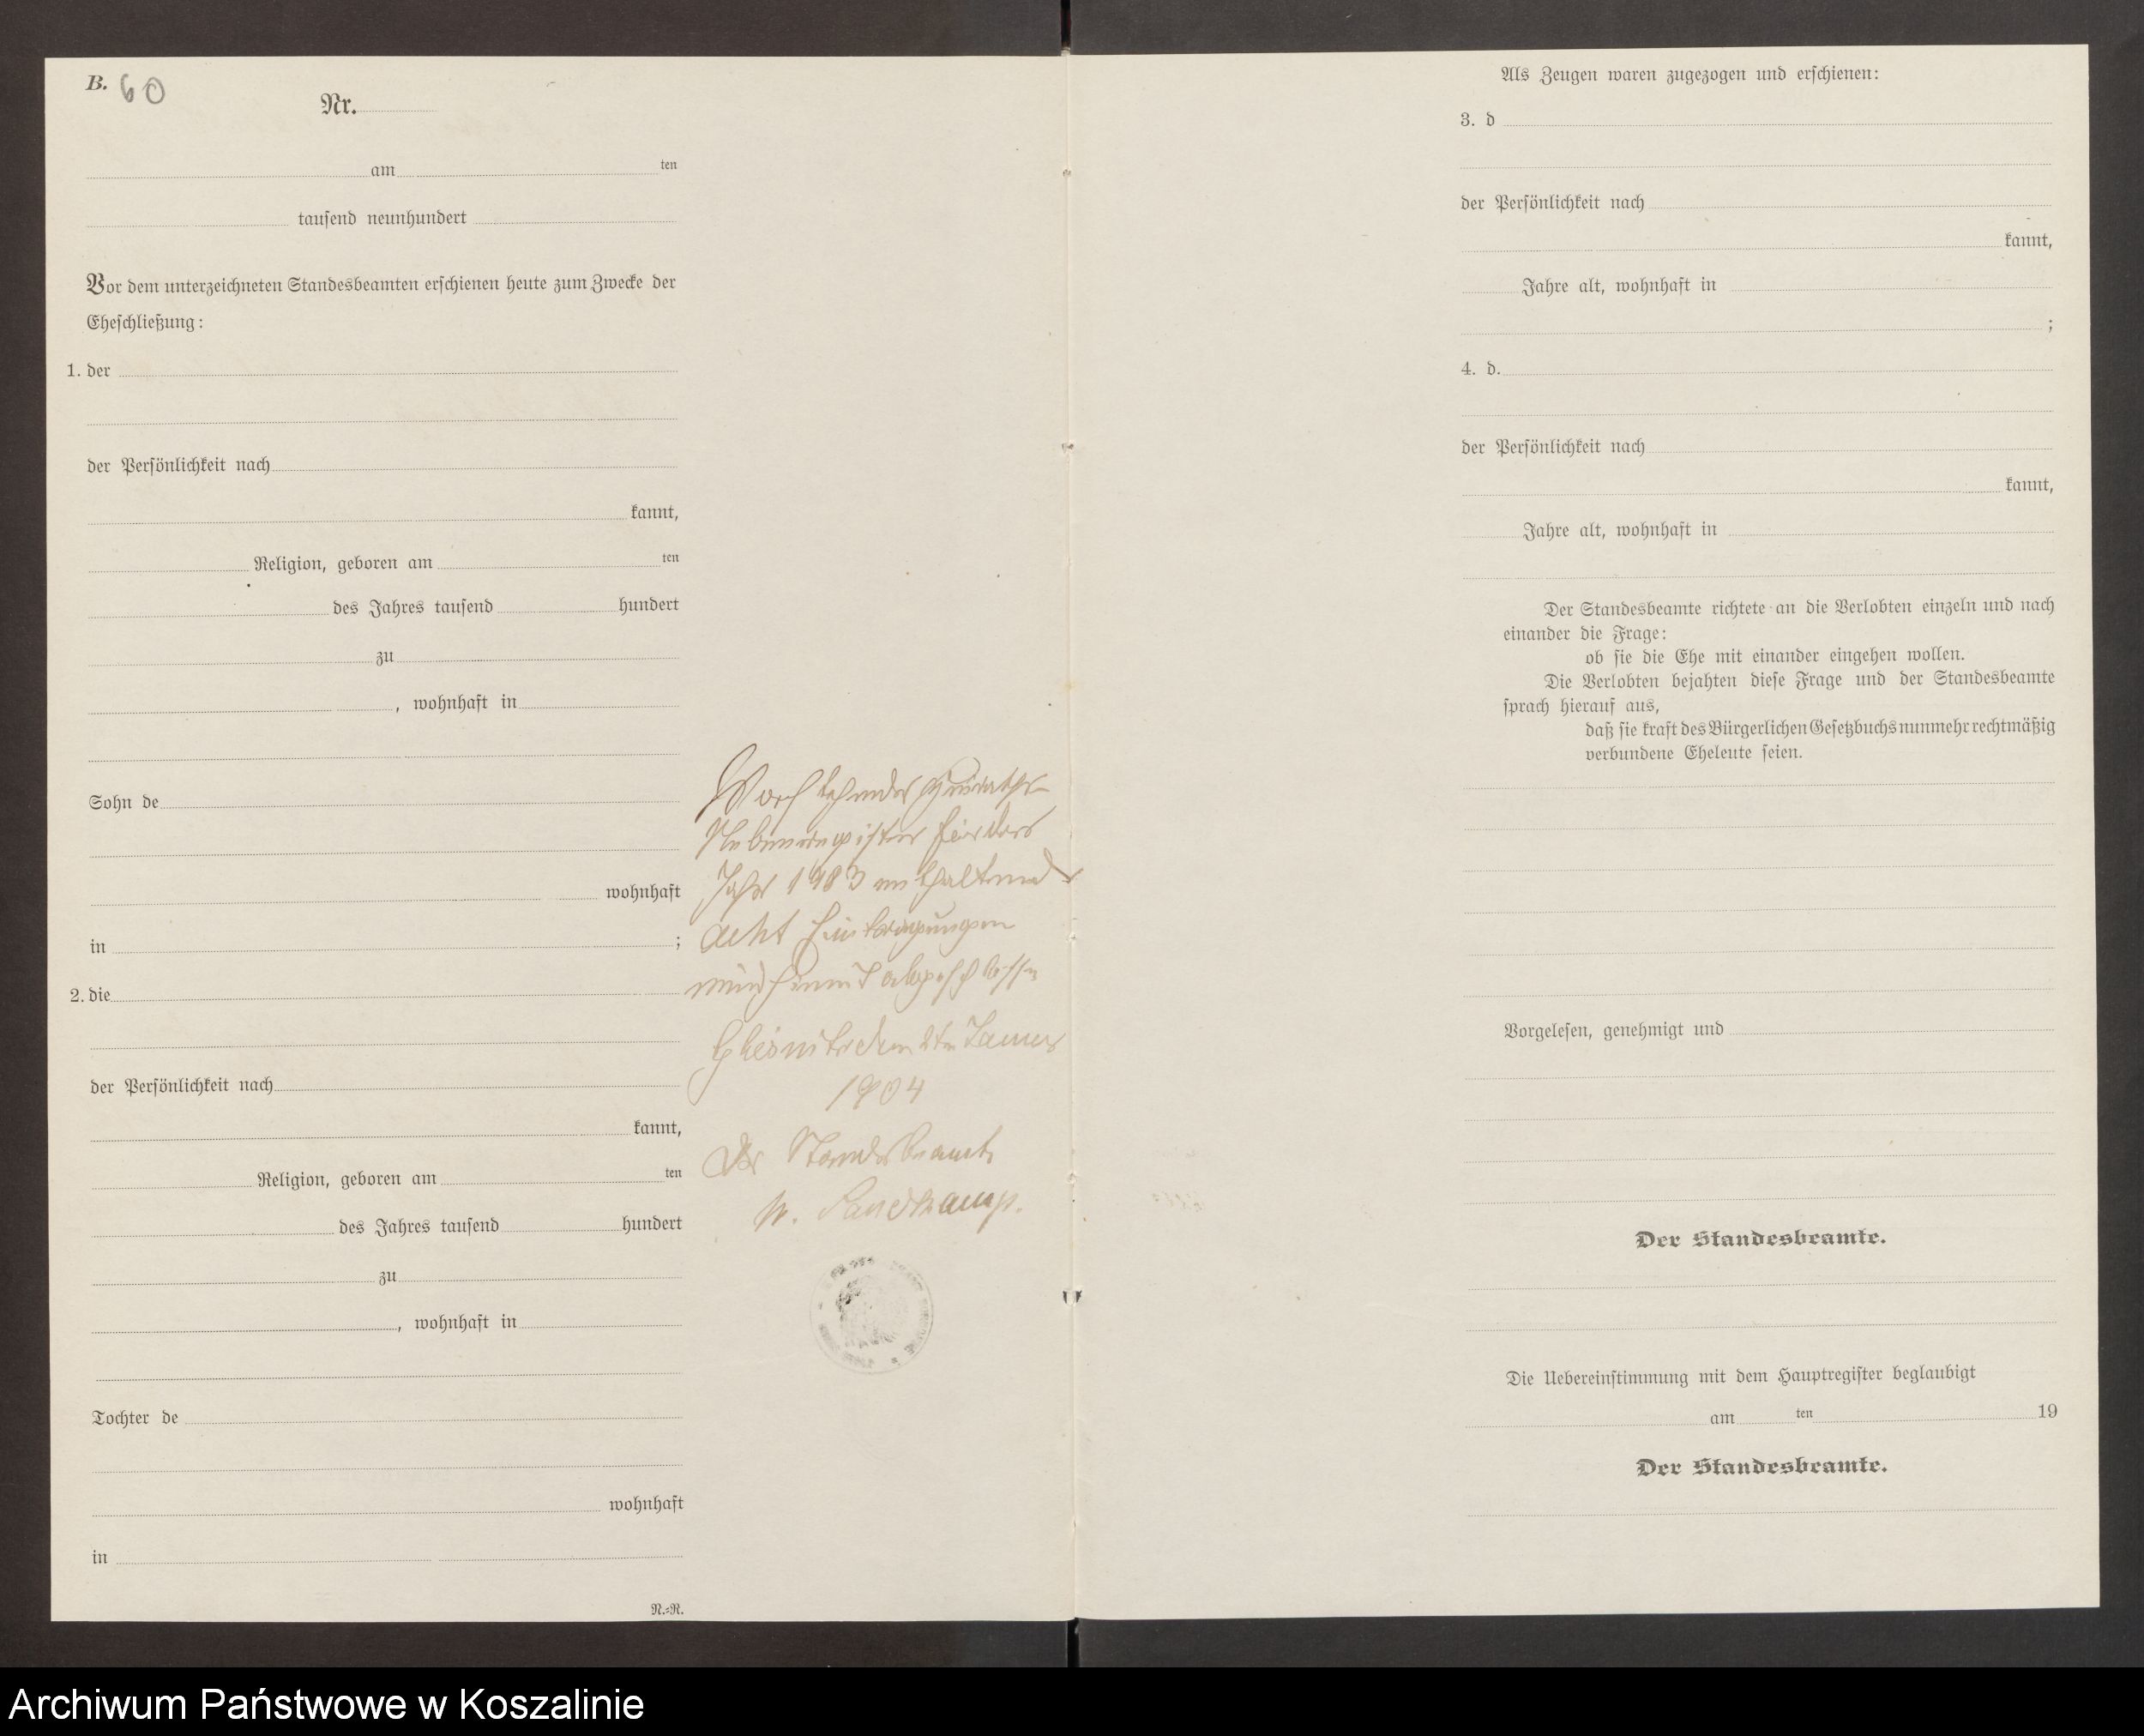 B. 60
Nr.
am ten
tausend neunhundert
Vor dem unterzeichneten Standesbeamten erschienen heute zum Zwecke der
Eheschließung:
1. der
der Persönlichkeit nach
kannt,
Religion, geboren am ten
des Jahres tausend hundert
zu
, wohnhaft in
Sohn de
wohnhaft
in ;
2. die
der Persönlichkeit nach
kannt,
Religion, geboren am ten
des Jahres tausend hundert
zu
, wohnhaft in
Tochter de
wohnhaft
in
N.=R.
Vorstehendes Heiraths-
Nebenregister für das
Jahr 1903 enthaltend
acht Eintragungen
wird hiermit abgeschlossen
den 2ten Januar
1904
Der Standesbeamte
Als Zeugen waren zugezogen und erschienen:
3. d
der Persönlichkeit nach
kannt,
Jahre alt, wohnhaft in
;
4. d.
der Persönlichkeit nach
kannt,
Jahre alt, wohnhaft in
Der Standesbeamte richtete an die Verlobten einzeln und nach
einander die Frage:
ob sie die Ehe mit einander eingehen wollen.
Die Verlobten bejahten diese Frage und der Standesbeamte
sprach hierauf aus,
daß sie kraft des Bürgerlichen Gesetzbuchs nunmehr rechtmäßig
verbundene Eheleute seien.
Vorgelesen, genehmigt und
Der Standesbeamte.
Die Uebereinstimmung mit dem Hauptregister beglaubigt
am ten 19
Der Standesbeamte.
Archiwum Państwowe w Koszalinie